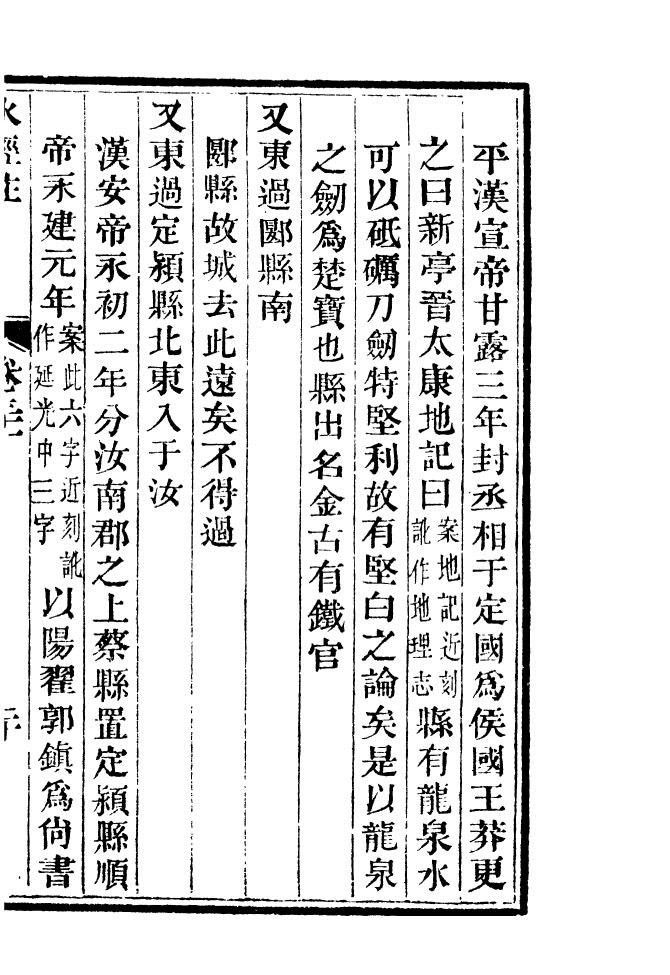 平漢宣帝甘露三年封丞相于定國爲侯國王莽更
之曰新亭晉太康地記曰案地記近刻訛作地理志縣有龍泉水
可以砥礪刀劒特堅利故有堅白之論矣是以龍泉
之劒爲楚寶也縣出名金古有鐵官
又東過郾縣南
郾縣故城去此遠矣不得過
又東過定潁縣北東入于汝
漢安帝永初二年分汝南郡之上蔡縣置定潁縣順
帝永建元年案此六字近刻訛作延光中三字以陽翟郭鎮爲尙書
水經注